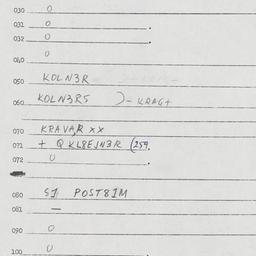 030 0
031 0 .
032 0 .
040 0
050 KOLN3R
060 KOLN3RS )- KRAG+
070 KRAVAR XX
071 + Q KL8EJN3R (259.
072 U .
080 S1 POST81M
081 —
090 0
100 U